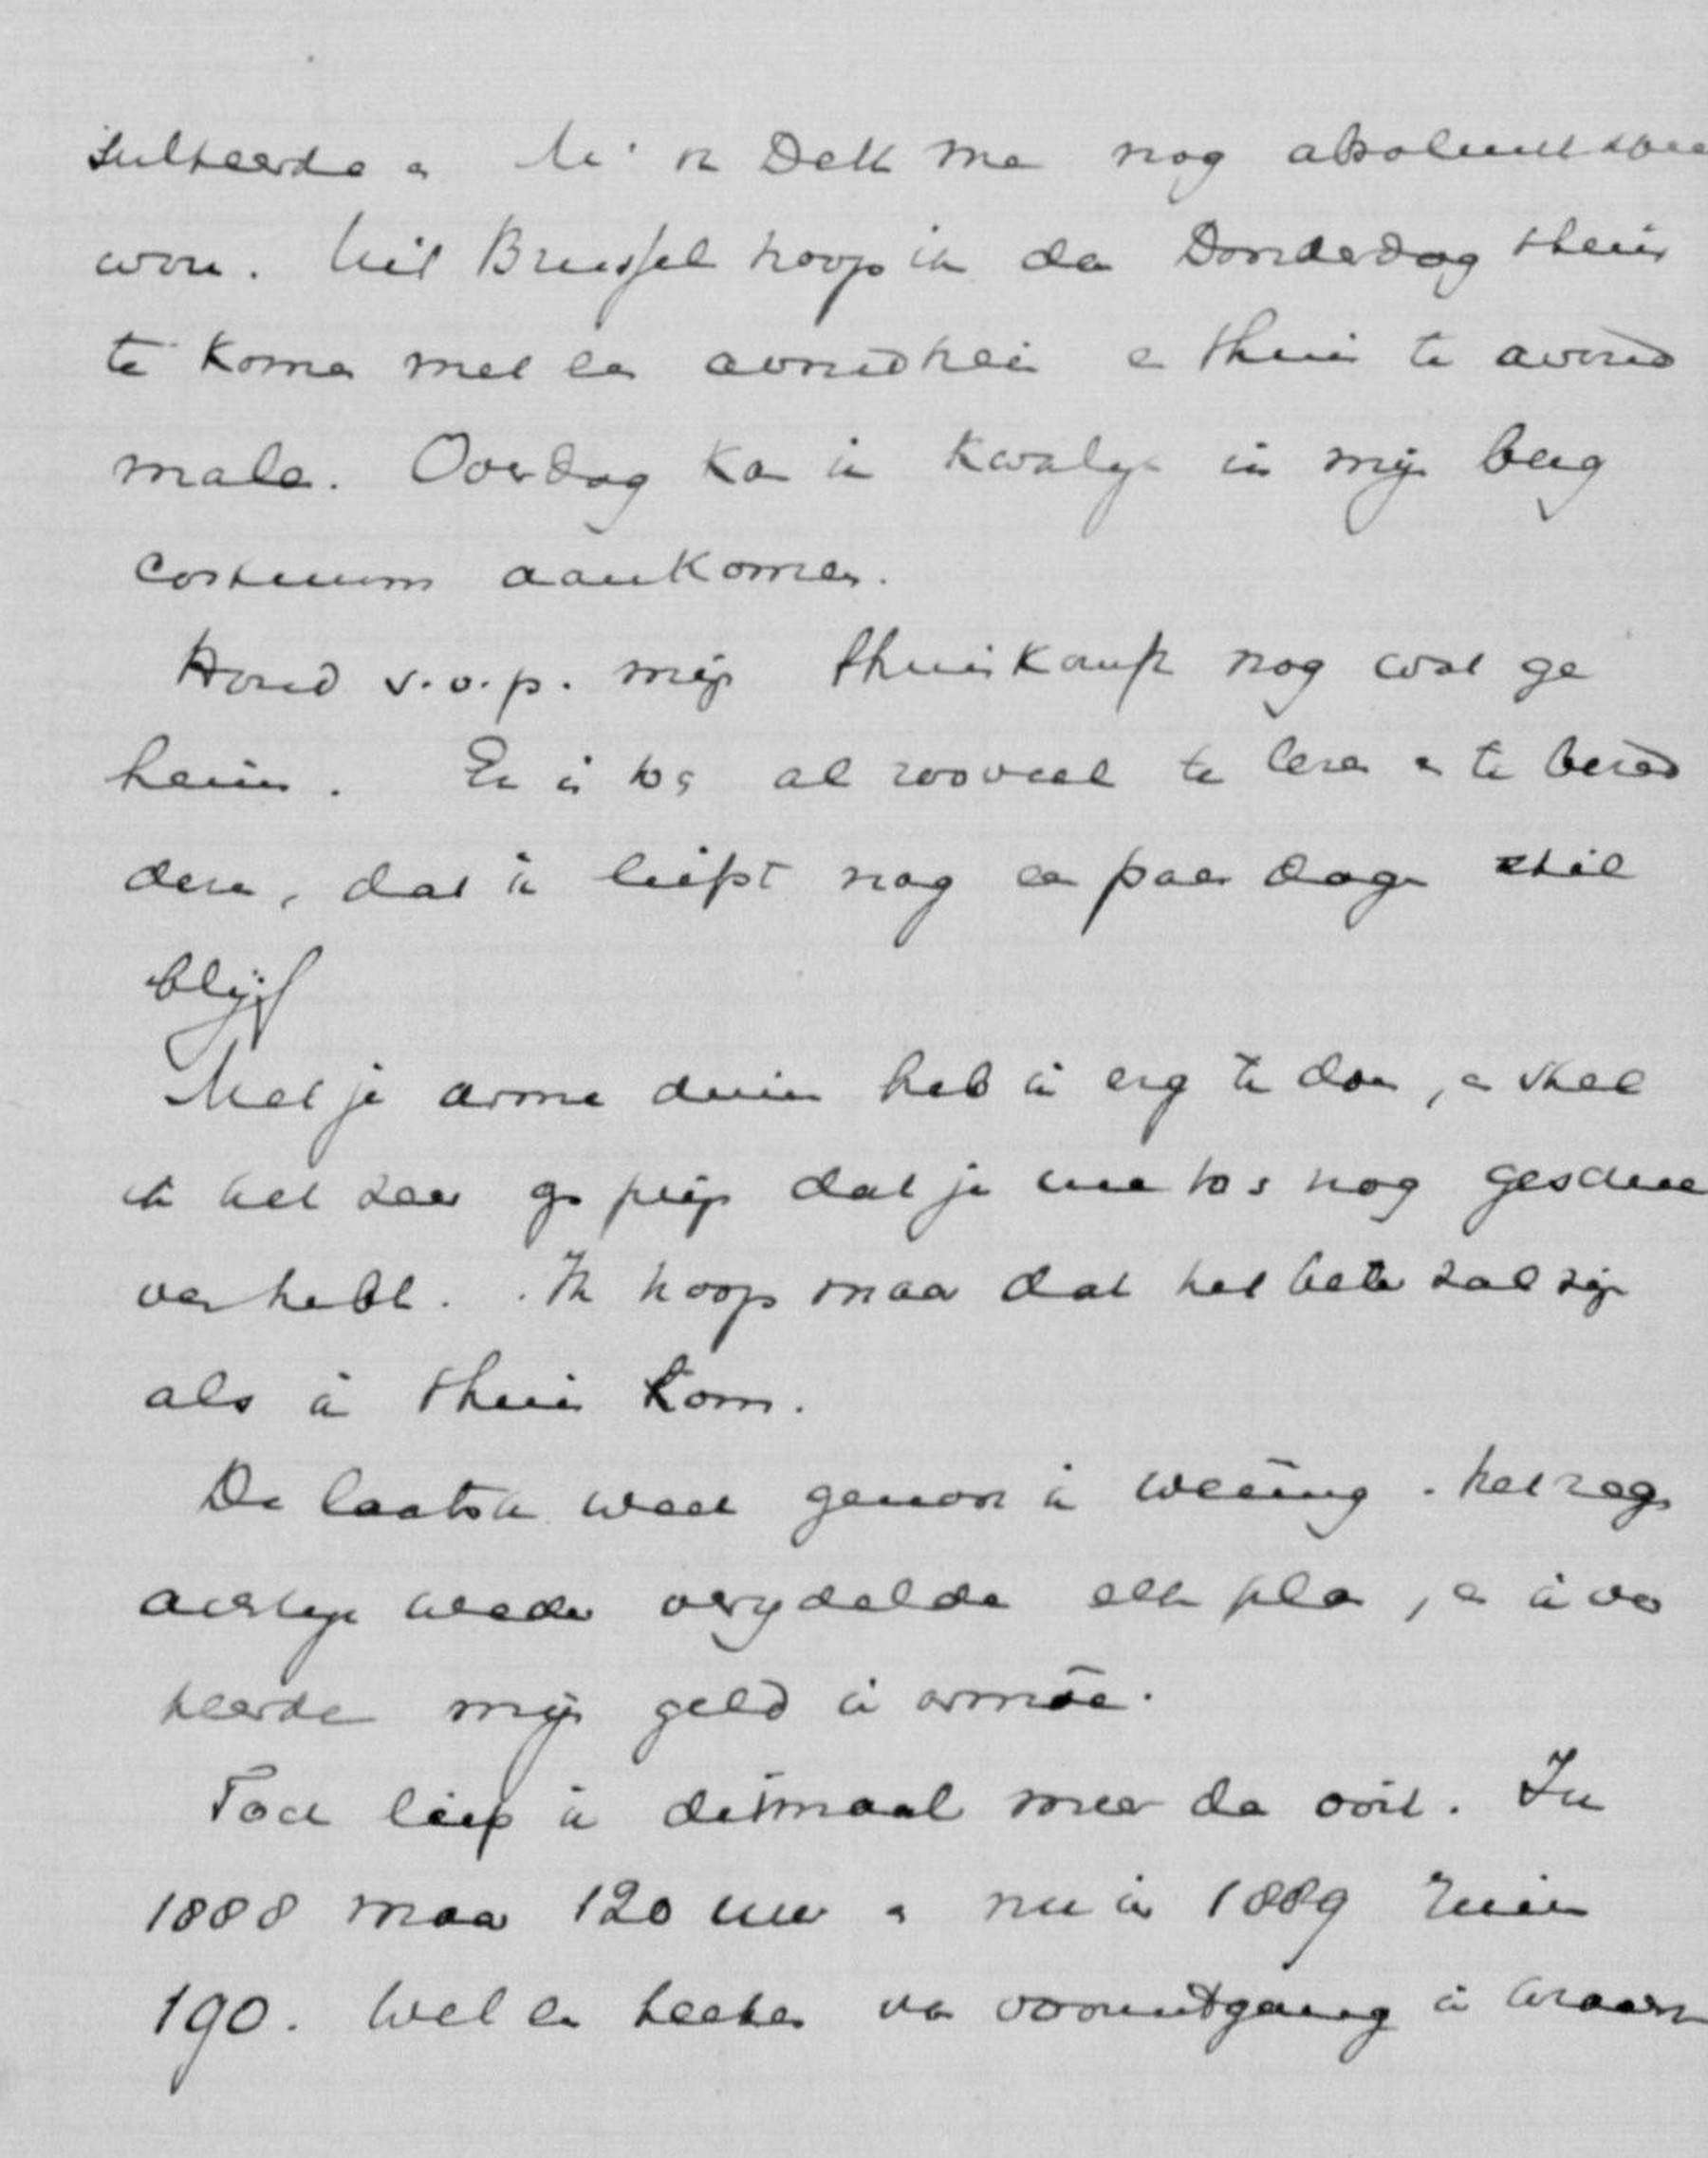 sulteerde en de in Delft me nog absoluut
won. Uit Brussel hoop ik den Donderdag thuis
te komen met een avondtrein en thuis te avond
malen. Overdag kan ik kwalijk in mijn berg
costuum aankomen.
Houd s.v.p. mijn thuiskomst nog wat ge
heim. Er is tog al zooveel te lezen en te bered
deren, dat ik liefst nog een paar dagen stil
blijf
Met je arme duim heb ik erg te doen, en vind
ik het zeer gs fijn dat je me tog nog geschre
ven hebt. Ik hoop maar dat het beter zal zijn
als ik thuis kom.
De laatste week genoot ik weinig. het regen
achtige weder verijdelde elk plan, en ik ver
teerde mijn geld in armoe.
Toch liep ik ditmaal meer dan ooit. In
1888 maar 120 uur en nu in 1889 ruim
190. Wel een teeken van vooruitgang in